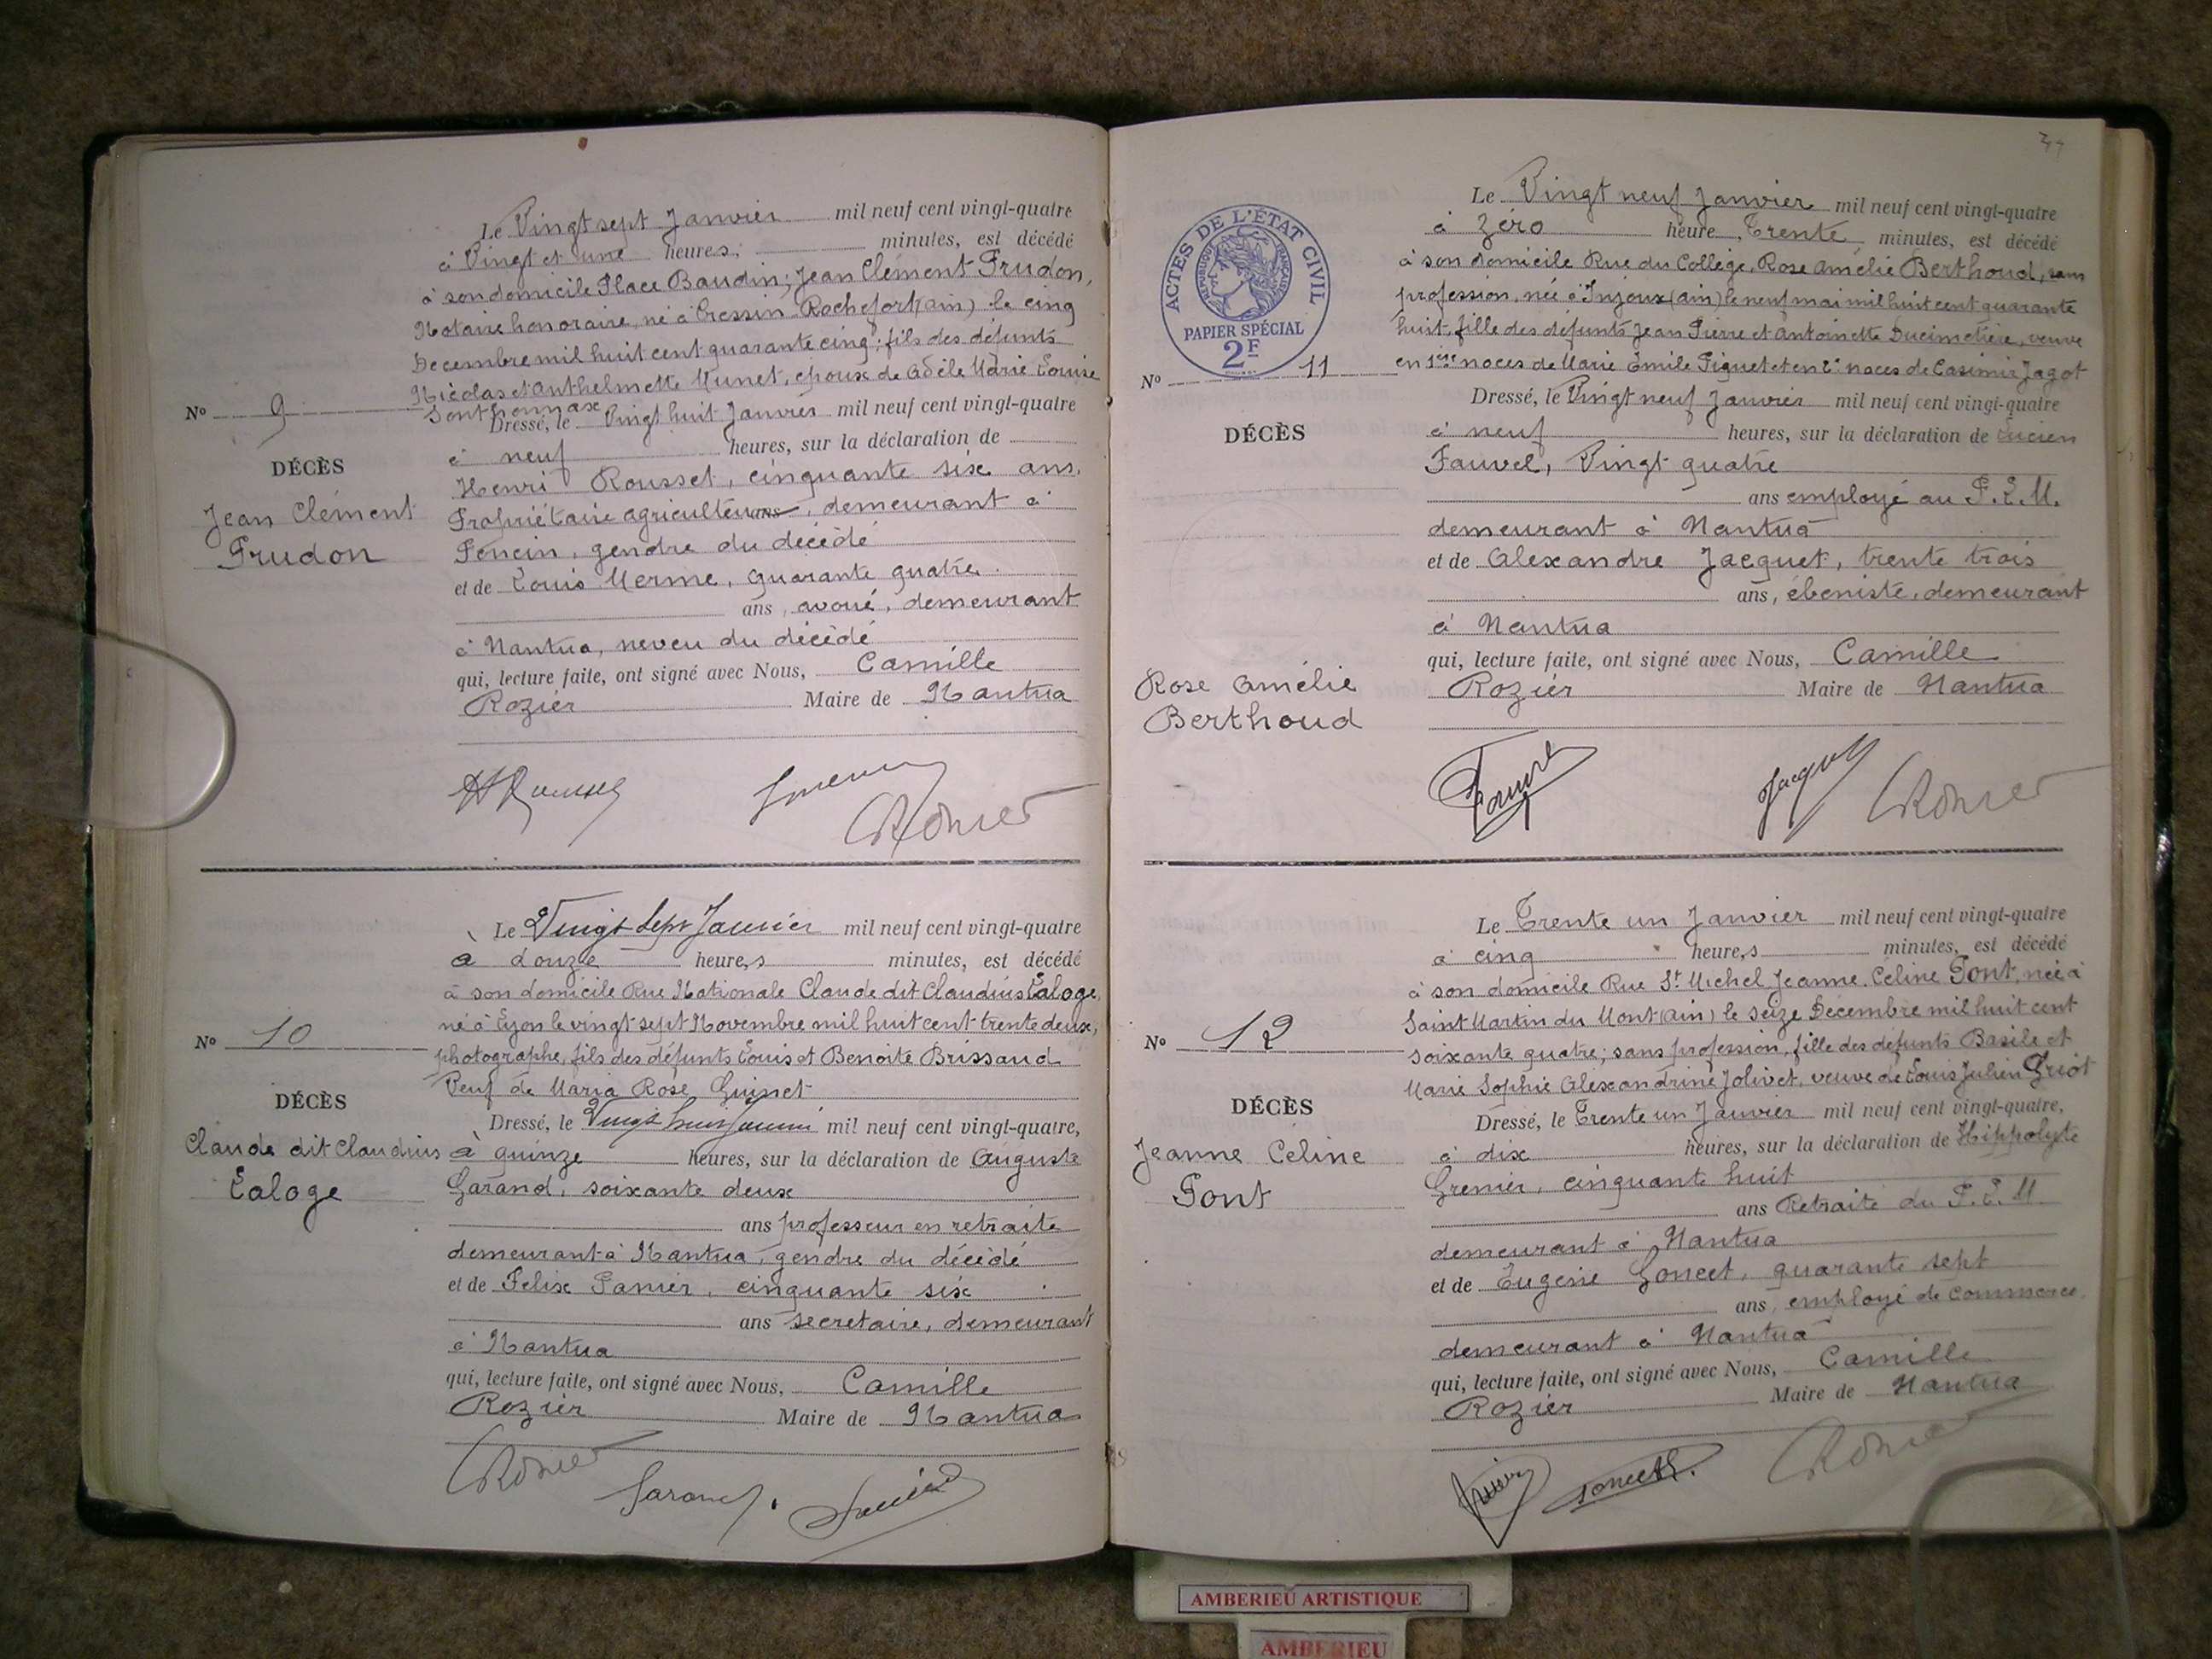 Le Vingt sept Janvier mil neuf cent vingt-quatre
à Vingt et une heures, minutes, est décédé
à son domicile Place Baudin, Jean Clément Prudon,
Notaire honoraire, né à Cressin-Rochefort (ain) le cinq
Decembre mil huit cent quarante cinq; fils des défunts
Nicolas et Anthelmette Munet, époux de Adèle Marie Louise
Sonthonnax
N° 9
Dressé, le Vingt huit Janvier mil neuf cent vingt-quatre
à neuf heures, sur la déclaration de
DÉCÈS
Henri Rousset, cinquante six ans.
Jean Clément
Prudon
Propriétaire agriculteur ans, demeurant à
Poncin, gendre du décédé
et de Louis Merme, quarante quatre
ans, avoué, demeurant
à Nantua, neveu du décédé
qui, lecture faite, ont signé avec Nous, Camille
Rozier Maire de Nantua
Le Vingt Sept Janvier mil neuf cent vingt-quatre
à douze heures minutes, est décédé
à son domicile Rue Nationale Claude dit Claudius Laloge,
né à Lyon le vingt sept Novembre mil huit cent trente deux,
photographe, fils des défunts Louis et Benoite Brissaud
Veuf de Maria Rose Guinet
N° 10
DÉCÈS
Claude dit Claudius
Laloge
Dressé, le Vingt huit Janvier mil neuf cent vingt-quatre,
à quinze heures, sur la déclaration de Auguste
Garand, soixante deux
ans professeur en retraite
demeurant à Nantua, gendre du décédé
et de Felix Panier, cinquante six
ans secretaire, demeurant
à Nantua
qui, lecture faite, ont signé avec Nous, Camille
Rozier Maire de Nantua
ACTES DE L'ÉTAT CIVIL
RÉPUBLIQUE FRANÇAISE
PAPIER SPÉCIAL
2F
Le Vingt neuf Janvier mil neuf cent vingt-quatre
à zéro heure, Trente minutes, est décédé
à son domicile Rue du Collège, Rose Amélie Berthoud, sans
profession, née à Injoux (ain) le neuf mai mil huit cent quarante
huit, fille des défunts Jean Pierre et Antoinette Ducimetière, veuve
en 1ères noces de Marie Emile Piguet et en 2e noces de Casimir Jagot
N° 11
DÉCÈS
Rose Amélie
Berthoud
Dressé, le Vingt neuf Janvier mil neuf cent vingt-quatre
à neuf heures, sur la déclaration de Lucien
Fauvel, Vingt quatre
ans employé au P.L.M.
demeurant à Nantua
et de Alexandre Jacquet, trente trois
ans, ébeniste, demeurant
à Nantua
qui, lecture faite, ont signé avec Nous, Camille
Rozier Maire de Nantua
Jacquet
Le Trente un Janvier mil neuf cent vingt-quatre
à cinq heures minutes, est décédé
à son domicile Rue St Michel Jeanne Céline Pont, née à
Saint Martin du Mont (ain) le seize Décembre mil huit cent
soixante quatre; sans profession, fille des défunts Basile et
Marie Sophie Alexandrine Jolivet, veuve de Louis Julien Griot
N° 12
DÉCÈS
Jeanne Céline
Pont
Dressé, le Trente un Janvier mil neuf cent vingt-quatre,
à dix heures, sur la déclaration de Hippolyte
Grenier, cinquante huit
ans Retraité du P.L.M
demeurant à Nantua
et de Eugène Goncet, quarante sept
ans, employé de commerce,
demeurant à Nantua
qui, lecture faite, ont signé avec Nous, Camille
Rozier Maire de Nantua
AMBERIEU ARTISTIQUE
AMBERIEU